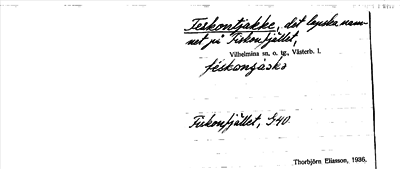 Feskontjakke, det lapska nam-
net på Fiskonfjället,
Vilhelmina sn, o. tg., Västerb. l.
féskonjáska
Fiskonfjället, 540.
Thorbjörn Eliasson, 1936.